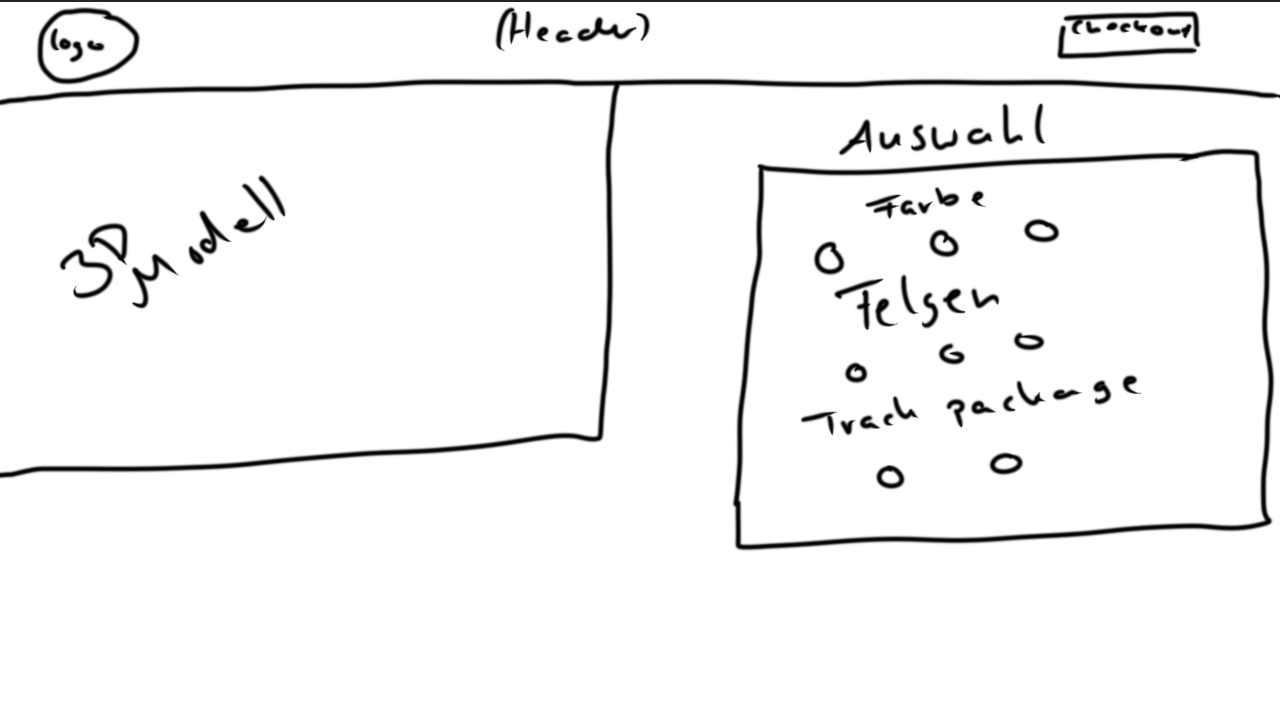 logo
(Header)
Checkout
3D Modell
Auswahl
Farbe
Felgen
Track package